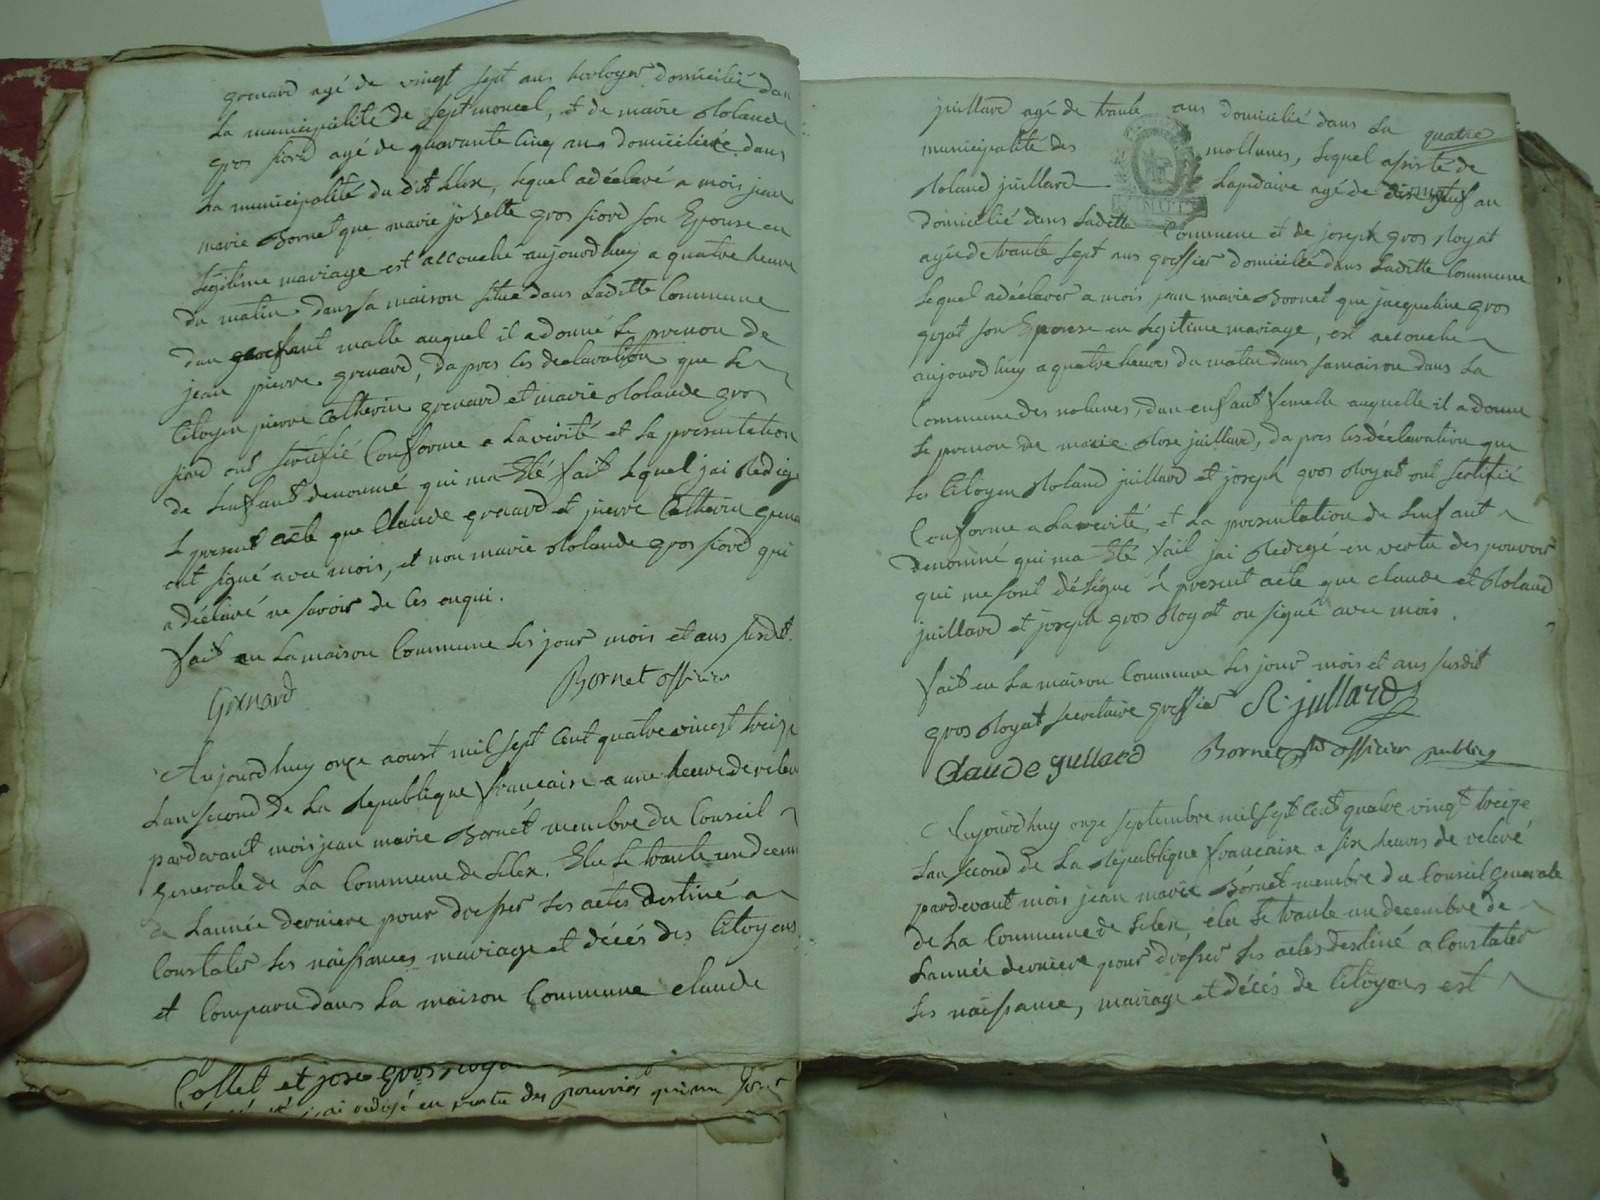 grenard agé de vingt sept ans horloger domicilié dan
La municipalité de septmoncel, et de marie Rolande
gros fiord agé de quarante cinq ans domiciliéé dans
La municipalité du dit Lelex, lequel a déclavé a mois jean
marie Bornet que marie josette gros fiord son Epouse en
légitime mariage est accouché aujourd huy a quatre heure
du matin dans sa maison située dans Laditte Commune
dun enfant malle auquel il a donné le prenon de
jean pierre grenard, dapres les declaration que le
Citoyen pierre Catherin grenard et marie Rolande gros
fiord ont sertifié Conforme a La vérité et la presentation
de Lenfant denommé qui ma Eté fait lequel jai Redigé
Le present acte que Claude grenard et pierre Catherin grena
ont signé avec mois, et non marie Rolande gros fiord qui
a déclaré ne savoir de ces enqui.
fait en La maison Commune les jour mois et ans susdit.
Grenard Bornet officier
Aujourd huy onze aoust mil sept Cent quatre vingt treize
Lan second de La Republique francaise a une heure de relevé
pardevant mois jean marie Bornet membre du Conseil
Generale de La Commune de Lelex, Elu Le trante un decem
de Lannée derniere pour dresser Les actes destiné a
Constater Les naissances mariage et décés des Citoyens
et Comparu dans La maison Commune claude
Collet et jose gros
jai redigé en vertu des pouvoirs qui me sont
quatre
juillard agé de trante ans domicilié dans La
municipalité des mollunes, lequel assisté de
Roland juillard Lapidaire agé de dixneuf an
domicilié dans Laditte Commune et de joseph gros Royat
agé de trante sept ans greffier domicilié dans Laditte Commune
Lequel a déclarer a mois jean marie Bornet que jacqueline gros
goyat son Epouse en legitime mariage, est accouche
aujourd huy a quatre heures du matin dans sa maison dans La
Commune des molunes, dun enfant femelle auquelle il a donne
Le prenon de marie Rose juillard, dapres les déclaration que
Les Citoyen Roland juillard et joseph gros Royat ont sertifié
Conforme a La vérité, et La presentation de Lenfant
denommé qui ma Eté fait jai Redegé en vertu des pouvoir
qui me sont déségué Le present acte que claude et Roland
juillard et joseph gros Royat on signé avec mois.
fait en La maison Commune Les jour mois et ans susdit
gros Royat secretaire greffier R. jullard
Claude jullard Bornet officier public
Aujourd huy onze septembre mil sept cent quatre vingt treize
Lan second de La République francaise a six heures de relevé
pardevant mois jean marie Bornet membre du Conseil generale
de La Commune de Lelex, élu Le trante un decembre de
Lannée derniere pour dresser Les actes destiné a Constater
Les naissance, mariage et décés de Citoyens est